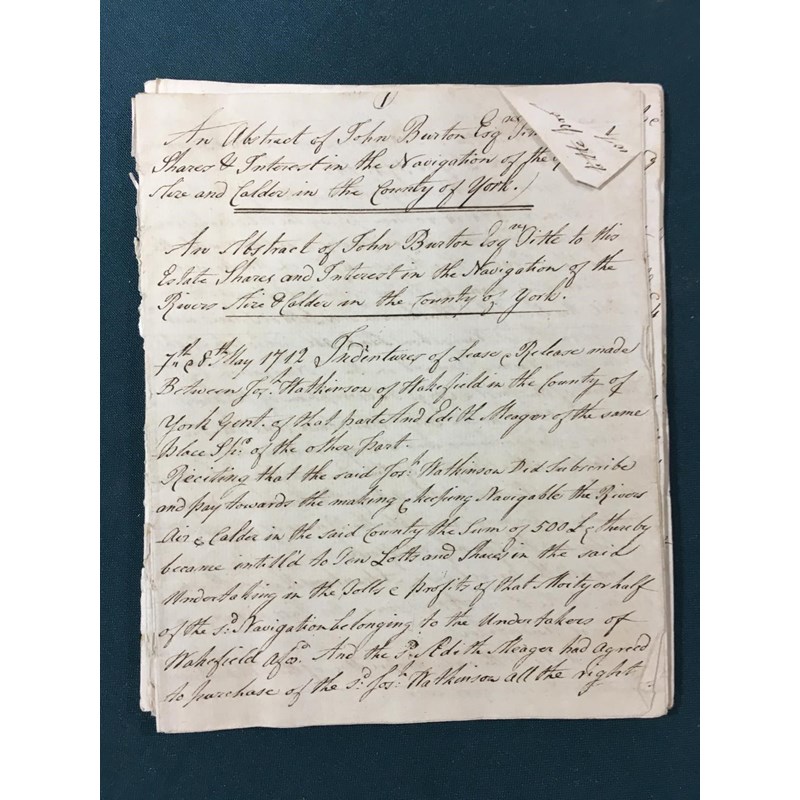 1
An Abstract of John Burton Esqrs
Shares & Interest in the Navigation of the
Aire and Calder in the County of York.
An Abstract of John Burton Esqrs Title to his
Estate Shares and Interest in the Navigation of the
Rivers Aire & Calder in the County of York.
7th & 8th May 1712 Indentures of Lease & Release made
Between Josh. Watkinson of Wakefield in the County of
York Gent. of that part And Edith Meager of the same
Place Spr. of the other Part.
Reciting that the said Josh. Watkinson Did Subscribe
and pay towards the making & keeping Navigable the Rivers
Air & Calder in the said County the Sum of 500£ & thereby
became intitl'd to Ten Lotts and Shares in the said
Undertaking in the Tolls & profits of that Moity or half
of the sd. Navigation belonging to the Undertakers of
Wakefield afsd. And the sd. Edith Meager had agreed
to purchase of the sd. Josh. Watkinson all the right